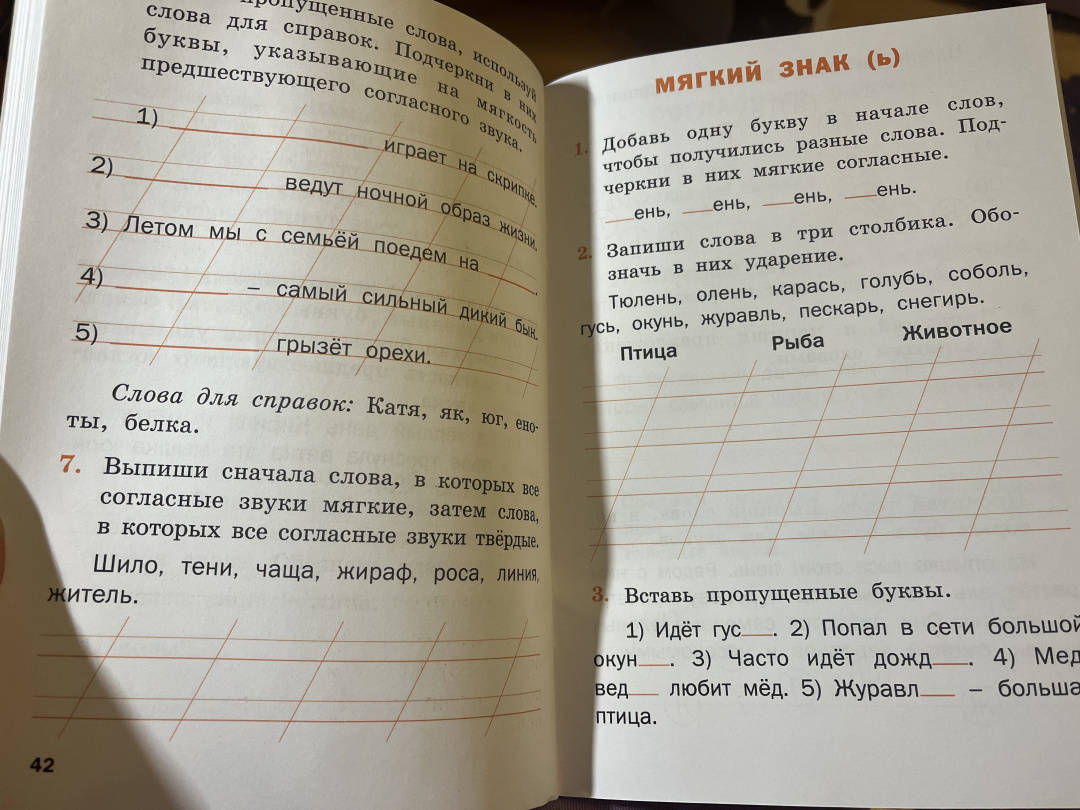 пропущенные слова, используй
слова для справок. Подчеркни в них
буквы, указывающие на мягкость
предшествующего согласного звука.
1) играет на скрипке.
2) ведут ночной образ жизни.
3) Летом мы с семьёй поедем на .
4) – самый сильный дикий бык.
5) грызёт орехи.
Слова для справок: Катя, як, юг, ено-
ты, белка.
7. Выпиши сначала слова, в которых все
согласные звуки мягкие, затем слова,
в которых все согласные звуки твёрдые.
Шило, тени, чаща, жираф, роса, линия,
житель.
42
МЯГКИЙ ЗНАК (ь)
1. Добавь одну букву в начале слов,
чтобы получились разные слова. Под-
черкни в них мягкие согласные.
__ень, __ень, __ень, __ень.
2. Запиши слова в три столбика. Обо-
значь в них ударение.
Тюлень, олень, карась, голубь, соболь,
гусь, окунь, журавль, пескарь, снегирь.
Птица Рыба Животное
3. Вставь пропущенные буквы.
1) Идёт гус__. 2) Попал в сети большой
окун__. 3) Часто идёт дожд__. 4) Мед
вед__ любит мёд. 5) Журавл__ – больша
птица.